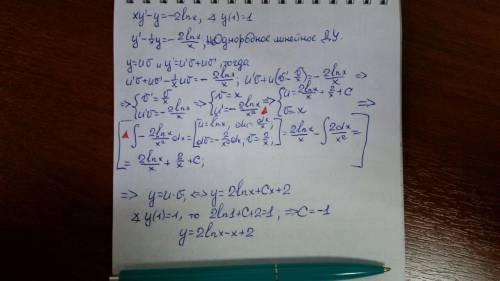 xy'-y=-2lnx, ∡ y(1)=1
y'-1/x y=-2lnx/x, Неоднородное линейное Д.У.
y=uσ и y'=u'σ+uσ', тогда
u'σ+uσ'-1/x uσ=-2lnx/x; u'σ+u(σ'-σ/x)=-2lnx/x =>
=> {σ'=σ/x; u'σ=-2lnx/x => {σ=x; u'=-2lnx/x² => {u=2lnx/x+2/x+C; σ=x =>
[∫-2lnx/x² dx=[u=lnx, du=dx/x; dσ=-2/x² dx, σ=2/x]=2lnx/x-∫2dx/x²=
=2lnx/x+2/x+C;]
=> y=u·σ, <=> y=2lnx+Cx+2
∡ y(1)=1, то 2ln1+C+2=1, => C=-1
y=2lnx-x+2